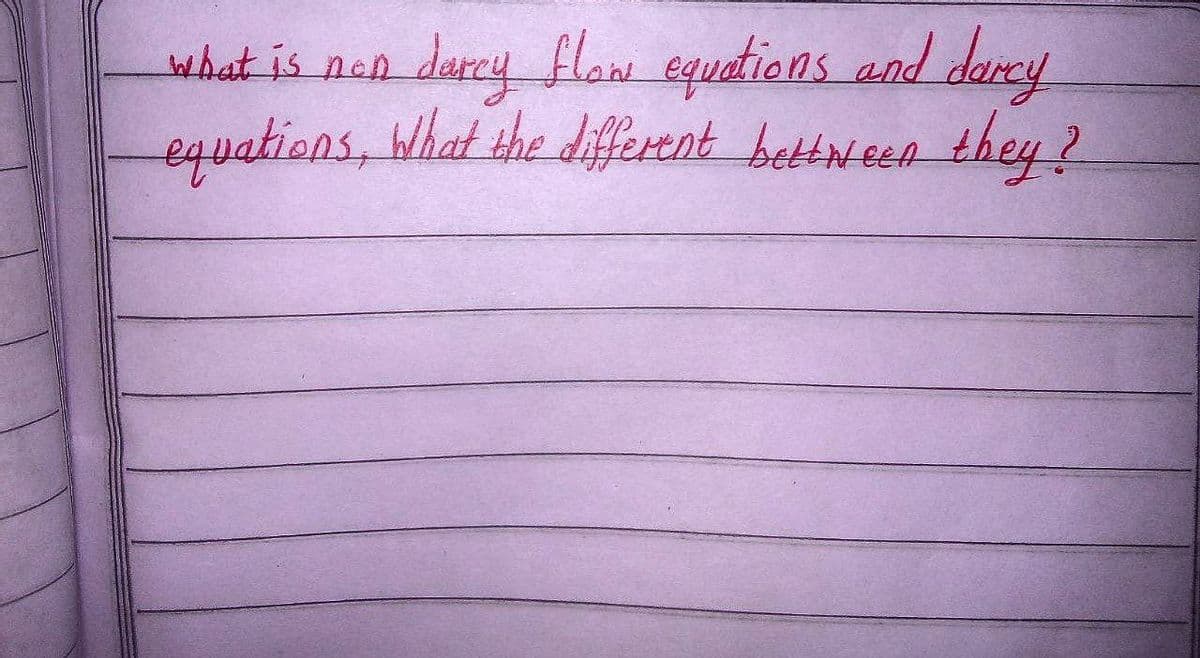 what is non darcy flow equations and darcy
equations, What the different bettween they?